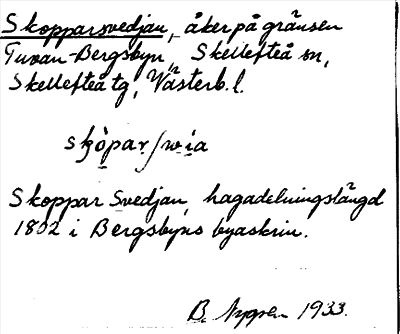 Skopparsvedjan, åker på gränsen
Tuvan-Bergsbyn, Skellefteå sn,
Skellefteå tg, Västerb. l.
Skoppar Svedjan, hagadelningslängd
1802 i Bergsbyns byaskrin.
B. Nygren 1933.